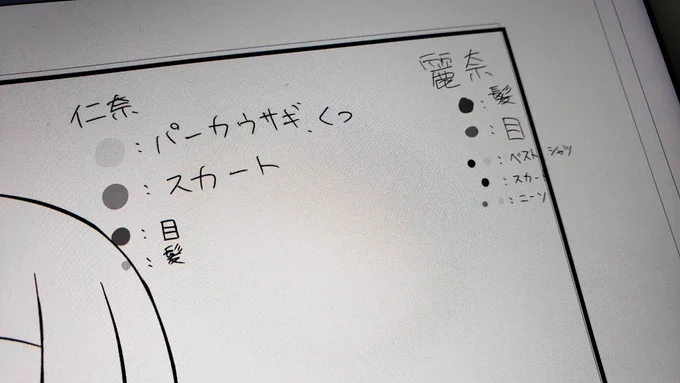 仁奈
：パーカウサギ、くつ
：スカート
：目
：髪
麗奈
：髪
：目
：ベスト シャツ
：スカート
：ニーソ